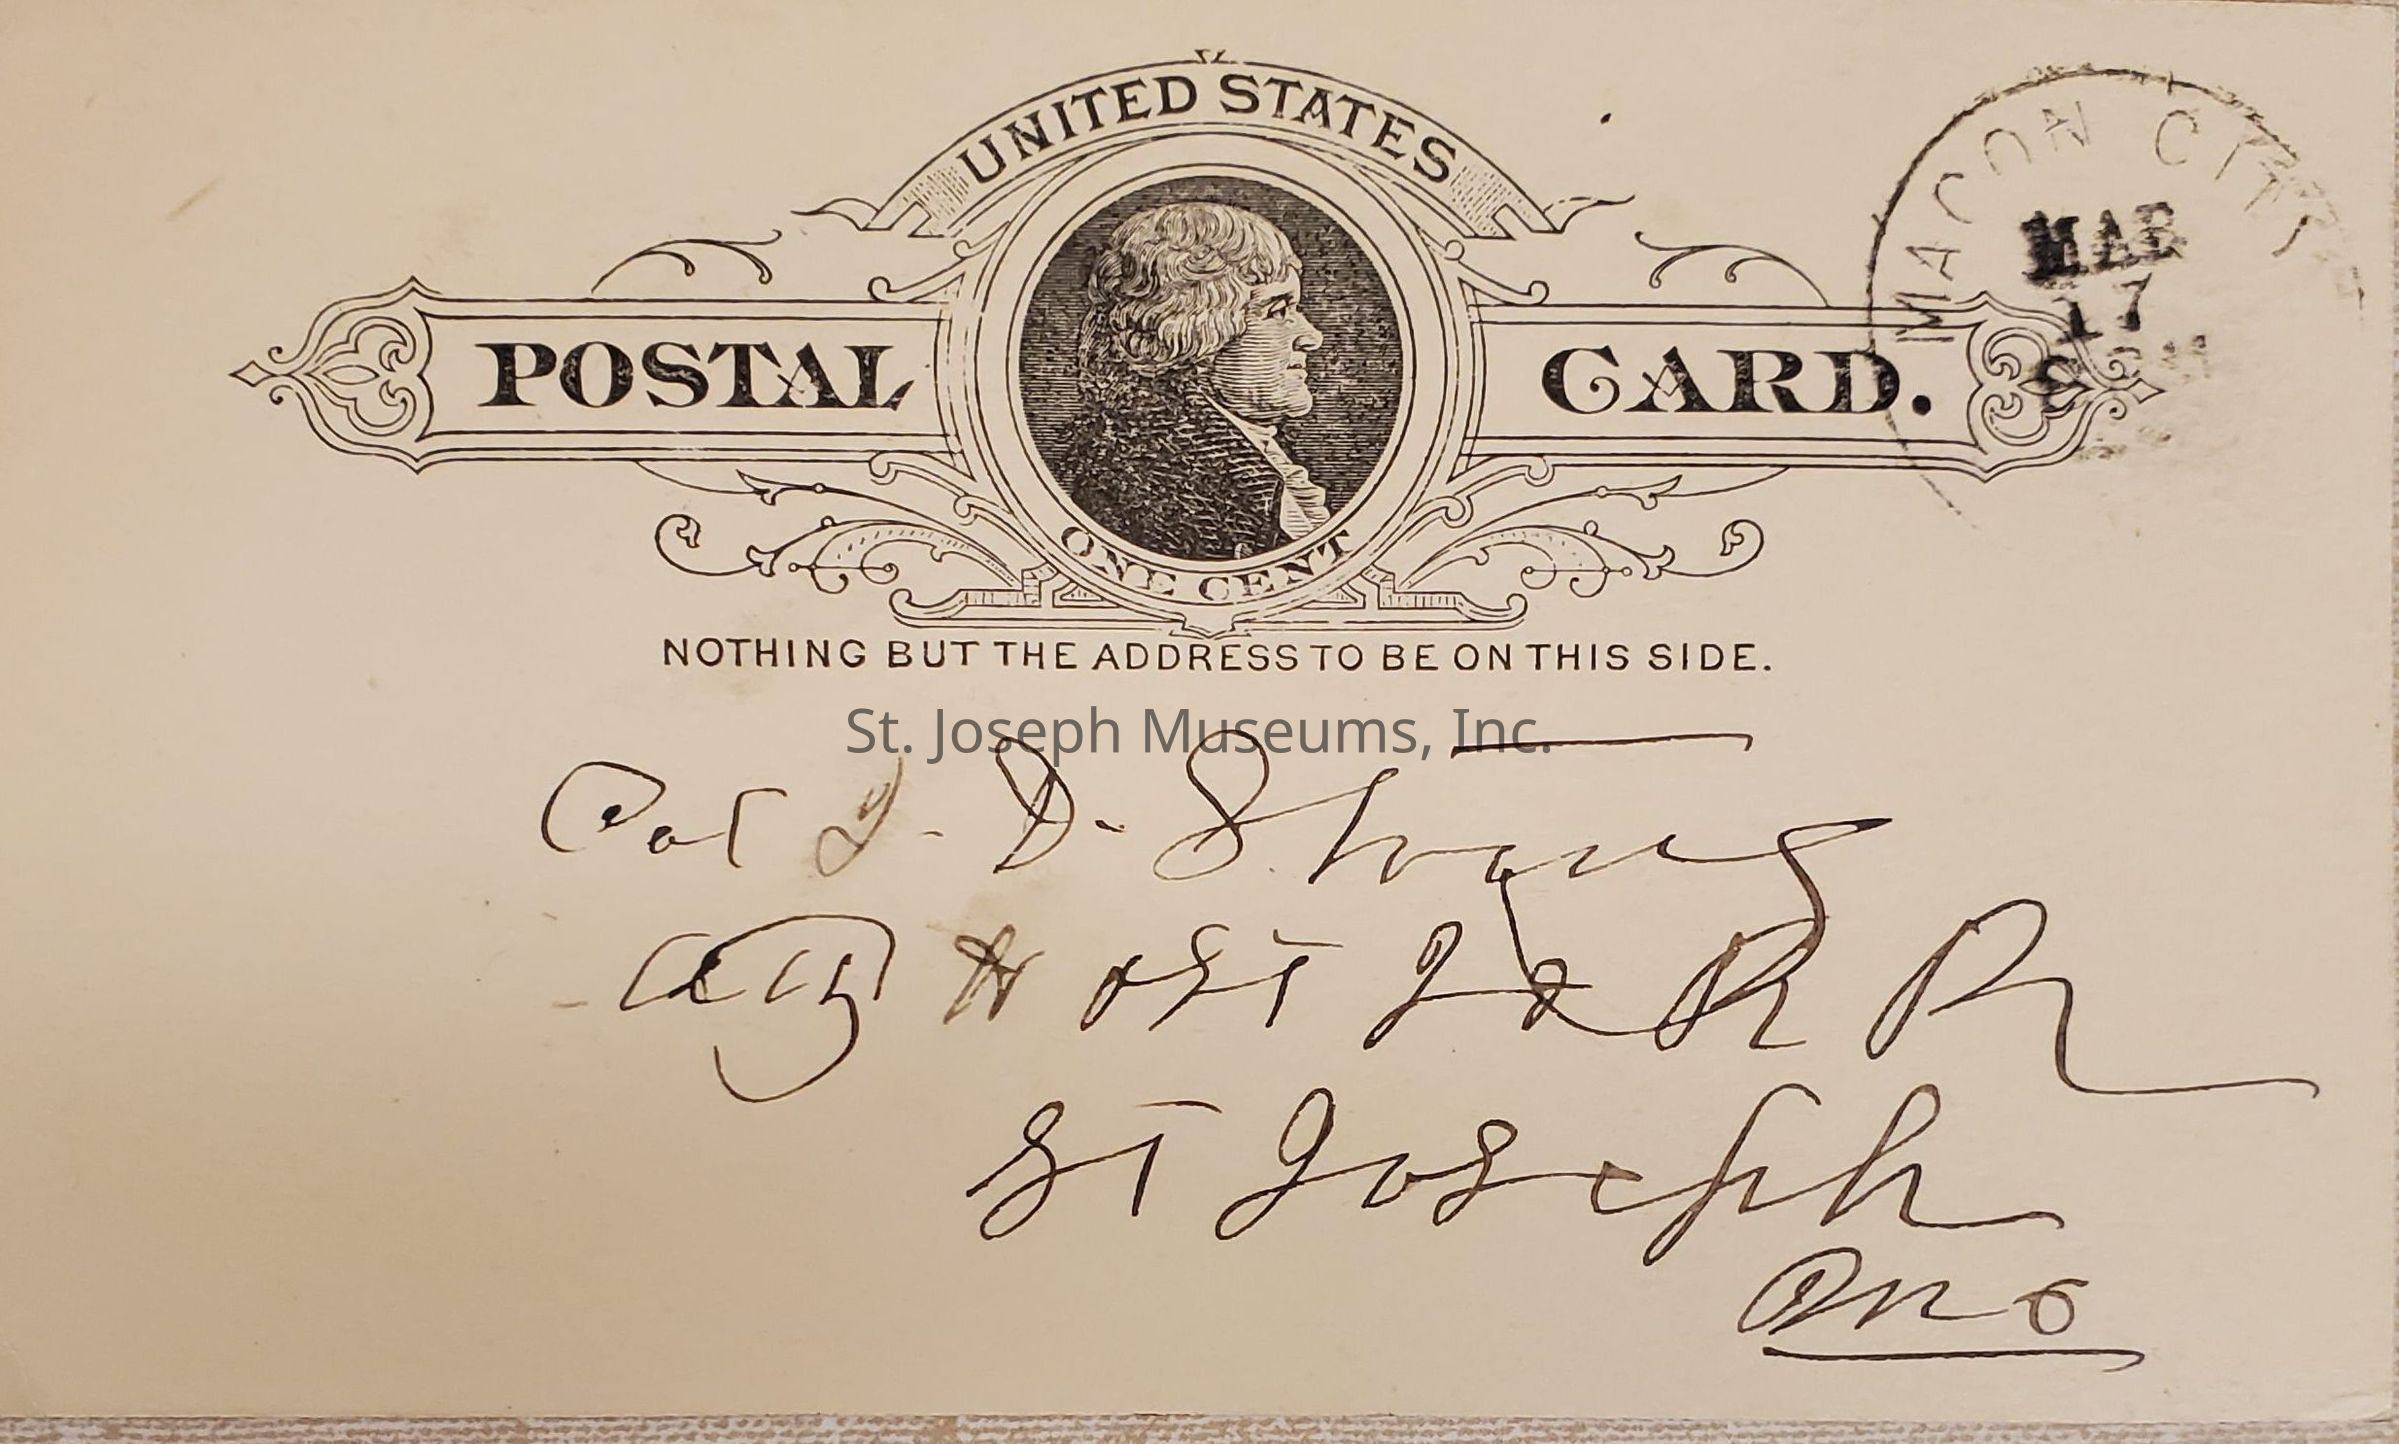 UNITED STATES
POSTAL CARD.
ONE CENT
MACON CITY
MAR
17
NOTHING BUT THE ADDRESS TO BE ON THIS SIDE.
St. Joseph Museums, Inc.
Col J. D. Strong
H & St Jo R R
St Joseph
Mo